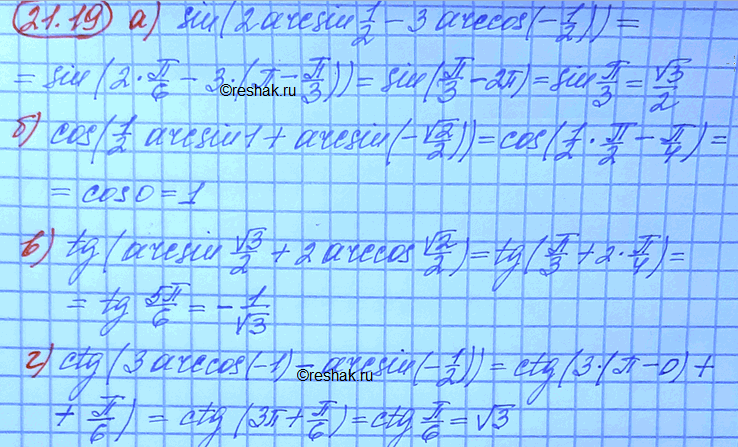 21.19 а) sin(2 arcsin 1/2 − 3 arccos(−1/2)) =
= sin(2·π/6 − 3·(π − π/3)) = sin(π/3 − 2π) = sin π/3 = √3/2
©reshak.ru
б) cos(1/2 arcsin 1 + arcsin(−√2/2)) = cos(1/2·π/2 − π/4) =
= cos 0 = 1
в) tg(arcsin √3/2 + 2 arccos √2/2) = tg(π/3 + 2·π/4) =
= tg 5π/6 = −1/√3
г) ctg(3 arccos(−1) − arcsin(−1/2)) = ctg(3·(π − 0) +
©reshak.ru
+ π/6) = ctg(3π + π/6) = ctg π/6 = √3